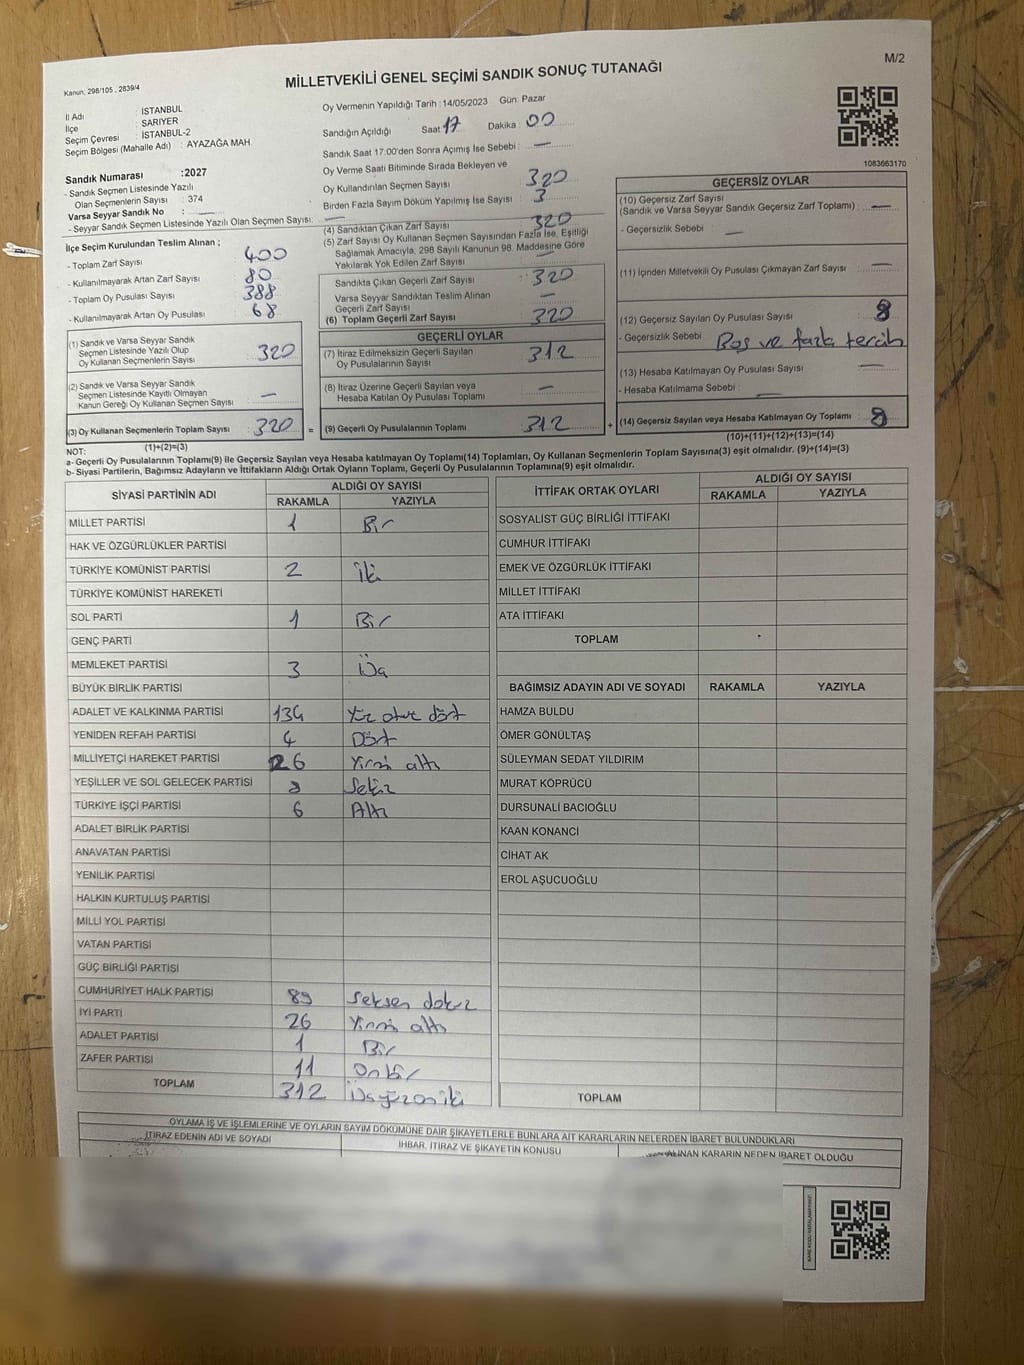 M/2
Kanun, 298/105 , 2839/4
MİLLETVEKİLİ GENEL SEÇİMİ SANDIK SONUÇ TUTANAĞI
İl Adı : İSTANBUL
İlçe : SARIYER
Seçim Çevresi : İSTANBUL-2
Seçim Bölgesi (Mahalle Adı) : AYAZAĞA MAH.
Oy Vermenin Yapıldığı Tarih : 14/05/2023 Gün: Pazar
Sandığın Açıldığı Saat 17 Dakika : 00
Sandık Saat 17:00'den Sonra Açımış İse Sebebi : —
Oy Verme Saati Bitiminde Sırada Bekleyen ve
Oy Kullandırılan Seçmen Sayısı 320
Birden Fazla Sayım Döküm Yapılmış İse Sayısı : 3
1083663170
Sandık Numarası :2027
- Sandık Seçmen Listesinde Yazılı
Olan Seçmenlerin Sayısı : 374
Varsa Seyyar Sandık No : —
- Seyyar Sandık Seçmen Listesinde Yazılı Olan Seçmen Sayısı: —
İlçe Seçim Kurulundan Teslim Alınan ;
- Toplam Zarf Sayısı 400
- Kullanılmayarak Artan Zarf Sayısı 80
- Toplam Oy Pusulası Sayısı 388
- Kullanılmayarak Artan Oy Pusulası 68
(1) Sandık ve Varsa Seyyar Sandık
Seçmen Listesinde Yazılı Olup
Oy Kullanan Seçmenlerin Sayısı 320
(2) Sandık ve Varsa Seyyar Sandık
Seçmen Listesinde Kayıtlı Olmayan
Kanun Gereği Oy Kullanan Seçmen Sayısı —
(3) Oy Kullanan Seçmenlerin Toplam Sayısı 320 =
(1)+(2)=(3)
(4) Sandıktan Çıkan Zarf Sayısı 320
(5) Zarf Sayısı Oy Kullanan Seçmen Sayısından Fazla İse, Eşitliği
Sağlamak Amacıyla, 298 Sayılı Kanunun 98. Maddesine Göre
Yakılarak Yok Edilen Zarf Sayısı —
Sandıkta Çıkan Geçerli Zarf Sayısı : 320
Varsa Seyyar Sandıktan Teslim Alınan
Geçerli Zarf Sayısı —
(6) Toplam Geçerli Zarf Sayısı 320
GEÇERLİ OYLAR
(7) İtiraz Edilmeksizin Geçerli Sayılan
Oy Pusulalarının Sayısı 312
(8) İtiraz Üzerine Geçerli Sayılan veya
Hesaba Katılan Oy Pusulası Toplamı —
(9) Geçerli Oy Pusulalarının Toplamı 312 +
GEÇERSİZ OYLAR
(10) Geçersiz Zarf Sayısı
(Sandık ve Varsa Seyyar Sandık Geçersiz Zarf Toplamı) : —
- Geçersizlik Sebebi : —
(11) İçinden Milletvekili Oy Pusulası Çıkmayan Zarf Sayısı —
(12) Geçersiz Sayılan Oy Pusulası Sayısı : 8
- Geçersizlik Sebebi Boş ve fazla tercih
(13) Hesaba Katılmayan Oy Pusulası Sayısı —
- Hesaba Katılmama Sebebi : —
(14) Geçersiz Sayılan veya Hesaba Katılmayan Oy Toplamı : 8
(10)+(11)+(12)+(13)=(14)
NOT:
a- Geçerli Oy Pusulalarının Toplamı(9) ile Geçersiz Sayılan veya Hesaba katılmayan Oy Toplamı(14) Toplamları, Oy Kullanan Seçmenlerin Toplam Sayısına(3) eşit olmalıdır. (9)+(14)=(3)
b- Siyasi Partilerin, Bağımsız Adayların ve İttifakların Aldığı Ortak Oyların Toplamı, Geçerli Oy Pusulalarının Toplamına(9) eşit olmalıdır.
SİYASİ PARTİNİN ADI ALDIĞI OY SAYISI
RAKAMLA YAZIYLA
MİLLET PARTİSİ 1 Bir
HAK VE ÖZGÜRLÜKLER PARTİSİ
TÜRKİYE KOMÜNİST PARTİSİ 2 İki
TÜRKİYE KOMÜNİST HAREKETİ
SOL PARTİ 1 Bir
GENÇ PARTİ
MEMLEKET PARTİSİ 3 Üç
BÜYÜK BİRLİK PARTİSİ
ADALET VE KALKINMA PARTİSİ 134 Yüz otuz dört
YENİDEN REFAH PARTİSİ 4 Dört
MİLLİYETÇİ HAREKET PARTİSİ 26 Yirmi altı
YEŞİLLER VE SOL GELECEK PARTİSİ 8 Sekiz
TÜRKİYE İŞÇİ PARTİSİ 6 Altı
ADALET BİRLİK PARTİSİ
ANAVATAN PARTİSİ
YENİLİK PARTİSİ
HALKIN KURTULUŞ PARTİSİ
MİLLİ YOL PARTİSİ
VATAN PARTİSİ
GÜÇ BİRLİĞİ PARTİSİ
CUMHURİYET HALK PARTİSİ 89 Seksen dokuz
İYİ PARTİ 26 Yirmi altı
ADALET PARTİSİ 1 Bir
ZAFER PARTİSİ 11 Onbir
TOPLAM 312 Üçyüzoniki
İTTİFAK ORTAK OYLARI ALDIĞI OY SAYISI
RAKAMLA YAZIYLA
SOSYALİST GÜÇ BİRLİĞİ İTTİFAKI
CUMHUR İTTİFAKI
EMEK VE ÖZGÜRLÜK İTTİFAKI
MİLLET İTTİFAKI
ATA İTTİFAKI
TOPLAM
BAĞIMSIZ ADAYIN ADI VE SOYADI RAKAMLA YAZIYLA
HAMZA BULDU
ÖMER GÖNÜLTAŞ
SÜLEYMAN SEDAT YILDIRIM
MURAT KÖPRÜCÜ
DURSUNALİ BACIOĞLU
KAAN KONANCİ
CİHAT AK
EROL AŞUCUOĞLU
TOPLAM
OYLAMA İŞ VE İŞLEMLERİNE VE OYLARIN SAYIM DÖKÜMÜNE DAİR ŞİKAYETLERLE BUNLARA AİT KARARLARIN NELERDEN İBARET BULUNDUKLARI
İTİRAZ EDENİN ADI VE SOYADI İHBAR, İTİRAZ VE ŞİKAYETİN KONUSU ALINAN KARARIN NEDEN İBARET OLDUĞU